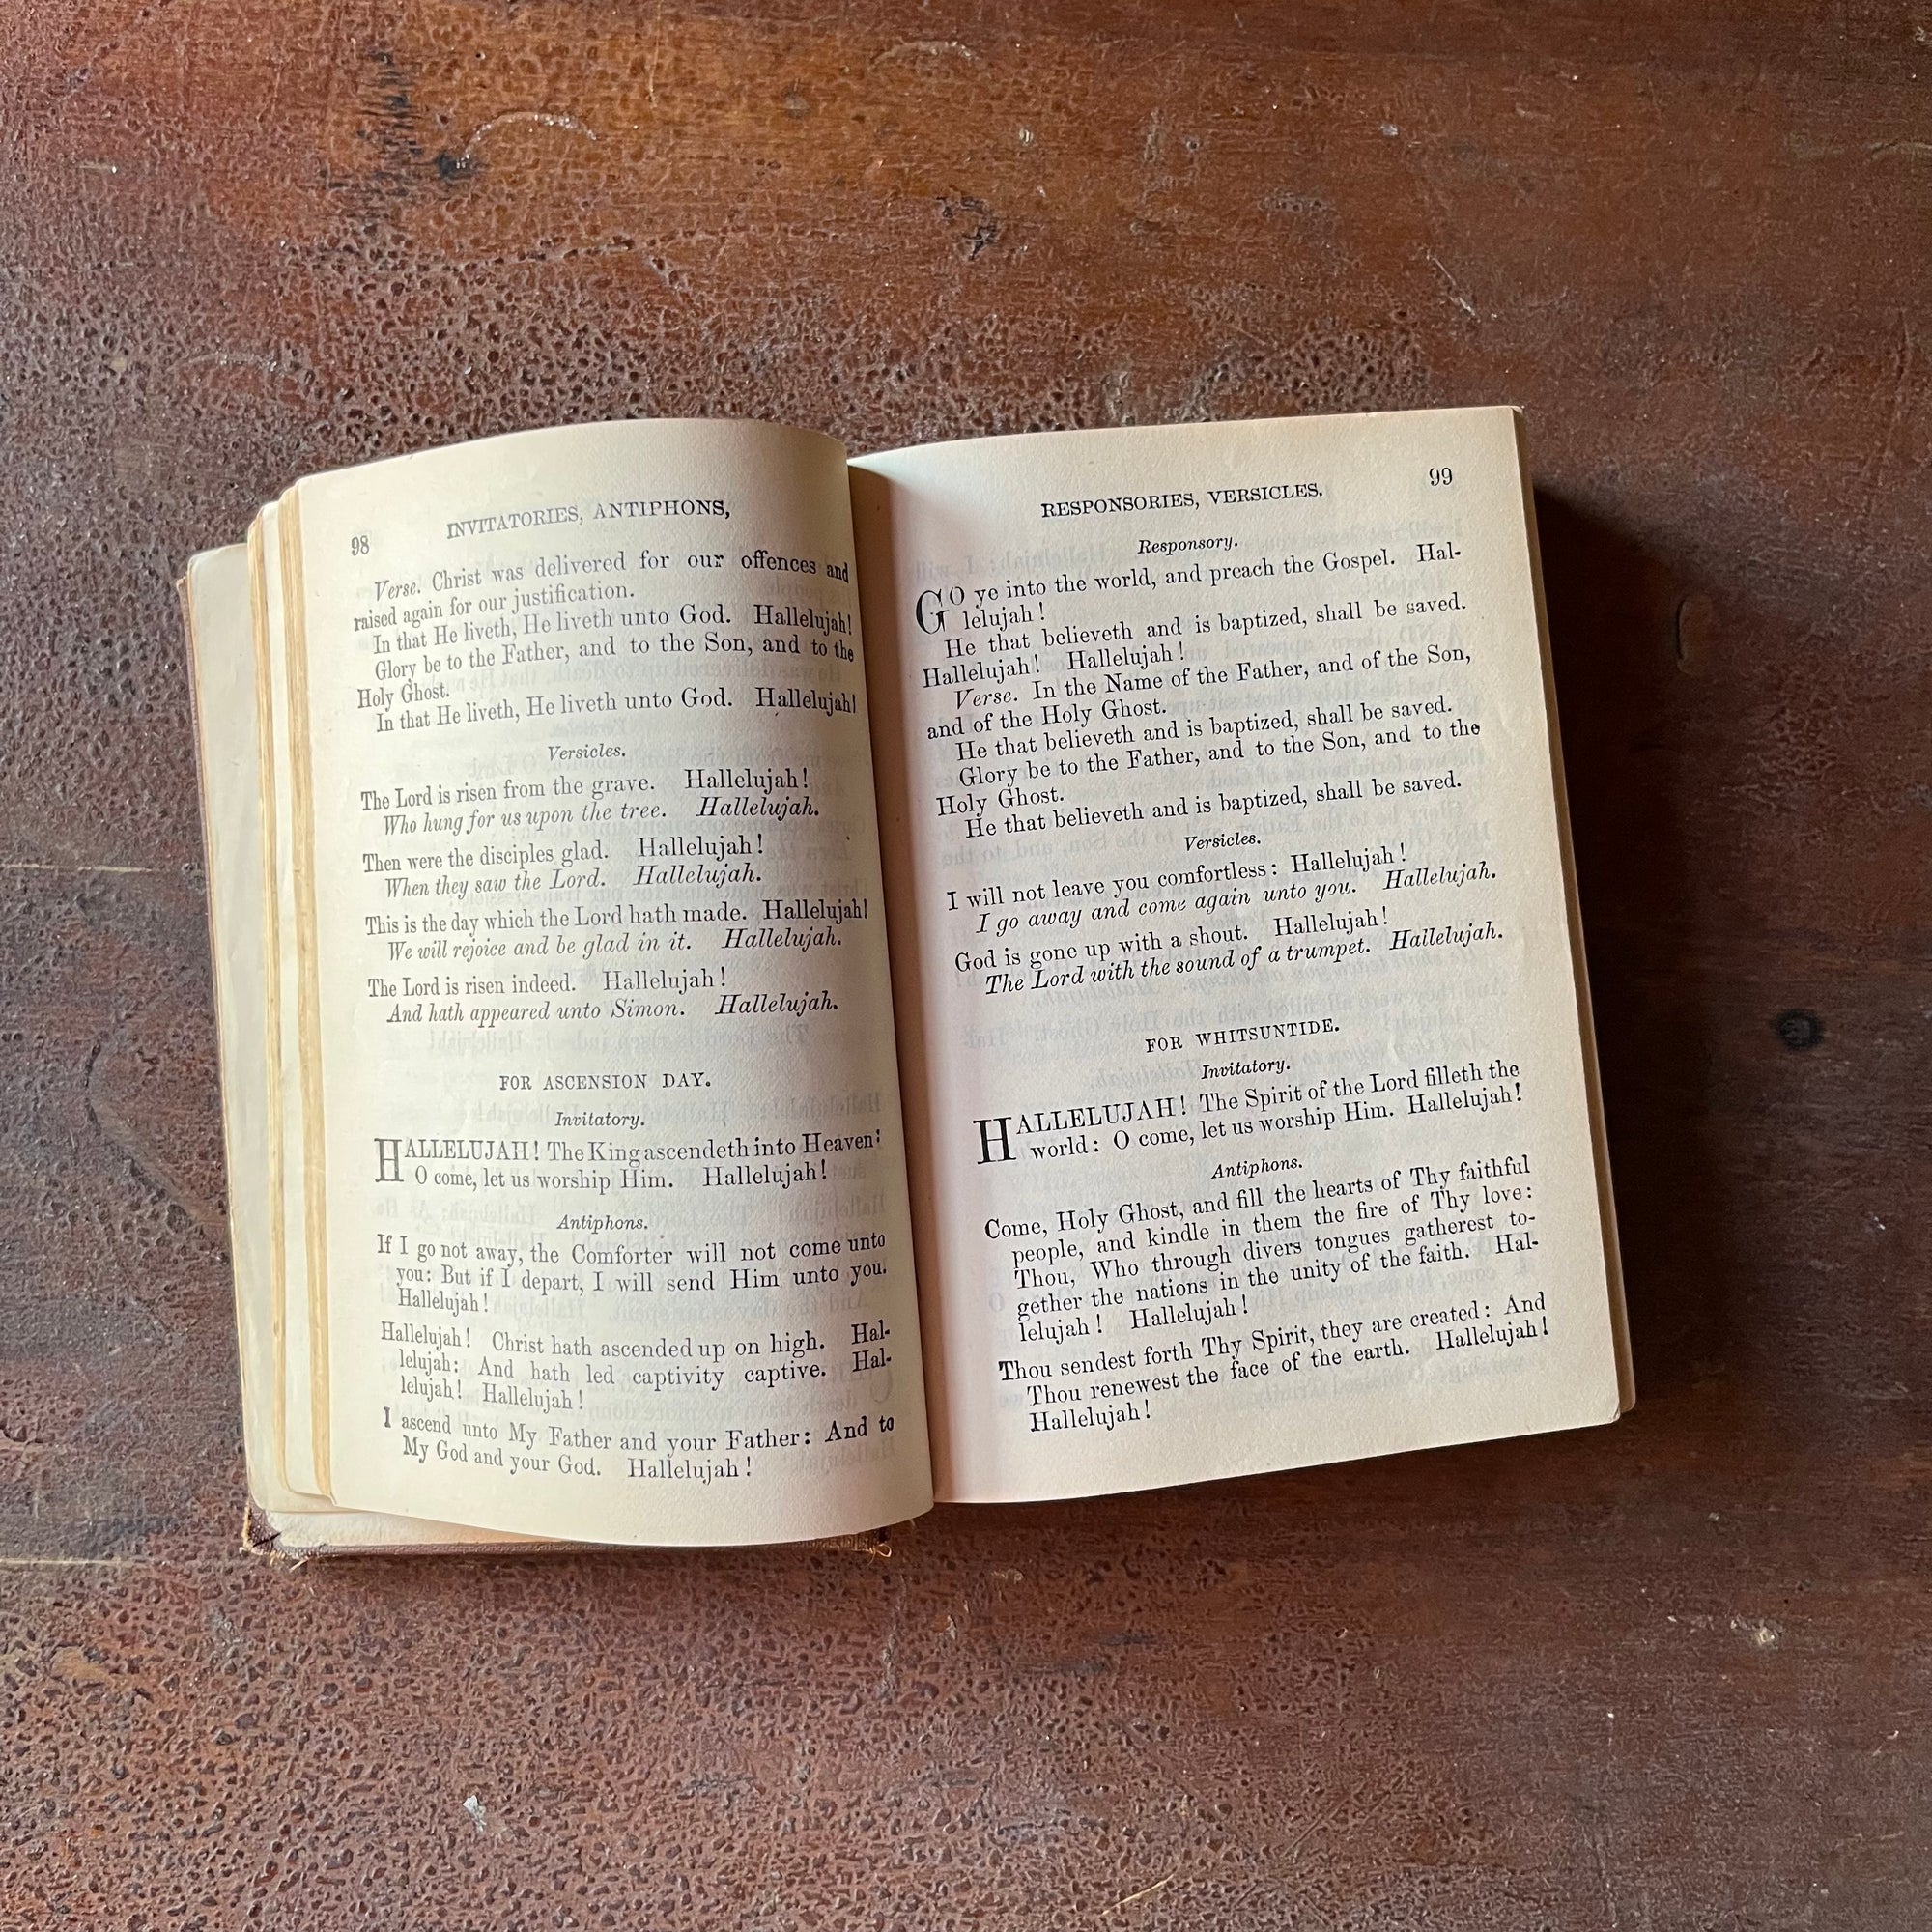 98 INVITATORIES, ANTIPHONS,
Verse. Christ was delivered for our offences and
raised again for our justification.
In that He liveth, He liveth unto God. Hallelujah!
Glory be to the Father, and to the Son, and to the
Holy Ghost.
In that He liveth, He liveth unto God. Hallelujah!
Versicles.
The Lord is risen from the grave. Hallelujah!
Who hung for us upon the tree. Hallelujah.
Then were the disciples glad. Hallelujah!
When they saw the Lord. Hallelujah.
This is the day which the Lord hath made. Hallelujah!
We will rejoice and be glad in it. Hallelujah.
The Lord is risen indeed. Hallelujah!
And hath appeared unto Simon. Hallelujah.
FOR ASCENSION DAY.
Invitatory.
HALLELUJAH! The King ascendeth into Heaven:
O come, let us worship Him. Hallelujah!
Antiphons.
If I go not away, the Comforter will not come unto
you: But if I depart, I will send Him unto you.
Hallelujah!
Hallelujah! Christ hath ascended up on high. Hal-
lelujah: And hath led captivity captive. Hal-
lelujah! Hallelujah!
I ascend unto My Father and your Father: And to
My God and your God. Hallelujah!
RESPONSORIES, VERSICLES. 99
Responsory.
GO ye into the world, and preach the Gospel. Hal-
lelujah!
He that believeth and is baptized, shall be saved.
Hallelujah! Hallelujah!
Verse. In the Name of the Father, and of the Son,
and of the Holy Ghost.
He that believeth and is baptized, shall be saved.
Glory be to the Father, and to the Son, and to the
Holy Ghost.
He that believeth and is baptized, shall be saved.
Versicles.
I will not leave you comfortless: Hallelujah!
I go away and come again unto you. Hallelujah.
God is gone up with a shout. Hallelujah!
The Lord with the sound of a trumpet. Hallelujah.
FOR WHITSUNTIDE.
Invitatory.
HALLELUJAH! The Spirit of the Lord filleth the
world: O come, let us worship Him. Hallelujah!
Antiphons.
Come, Holy Ghost, and fill the hearts of Thy faithful
people, and kindle in them the fire of Thy love:
Thou, Who through divers tongues gatherest to-
gether the nations in the unity of the faith. Hal-
lelujah! Hallelujah!
Thou sendest forth Thy Spirit, they are created: And
Thou renewest the face of the earth. Hallelujah!
Hallelujah!